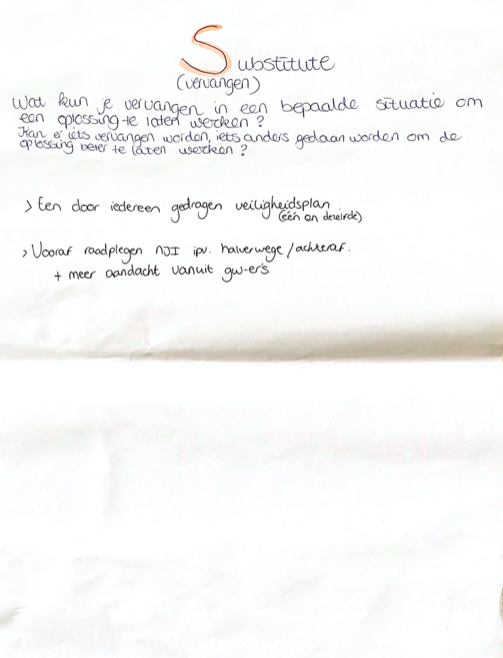 Substitute
(vervangen)
Wat kun je vervangen in een bepaalde situatie om
een oplossing te laten werken?
Kan er iets vervangen worden, iets anders gedaan worden om de
oplossing beter te laten werken?
> Een door iedereen gedragen veiligheidsplan
(één en dezelfde)
> Vooraf raadplegen NJI ipv. halverwege/achteraf.
+ meer aandacht vanuit gw-ers